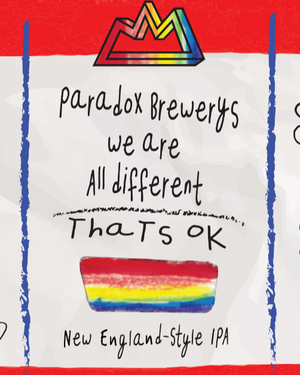 Paradox Brewerys
we are
All different
ThaTs OK
New England-Style IPA